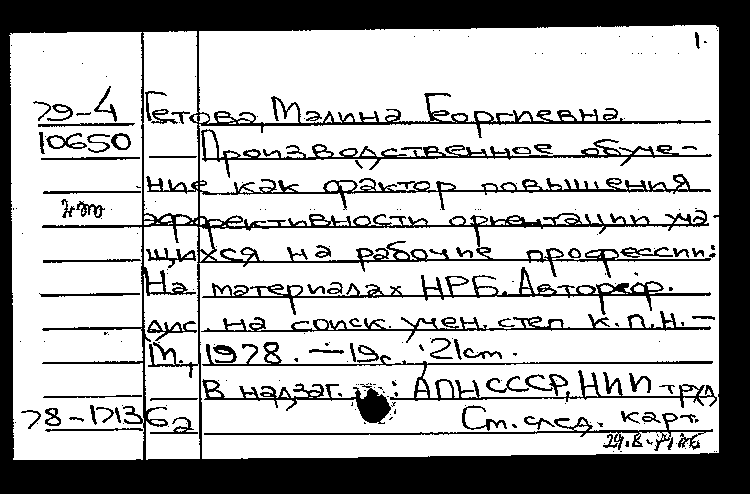 1.
79-4 Гетова, Малина Георгиевна.
10650 Производственное обуче-
ние как фактор повышения
эффективности ориентации уча-
щихся на рабочие профессии:
На материалах НРБ. Автореф.
дис. на соиск. учен. степ к.п.н. –
М., 1978. – 19с.; 21см.
В надзаг.: АПН СССР, НИИ труд
78-17136а См. след. карт.